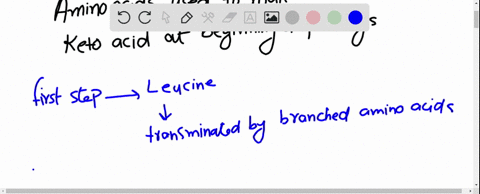 Amino
s
Keto acid at beginning
first step → Leucine
↓
transminated by branched amino acids